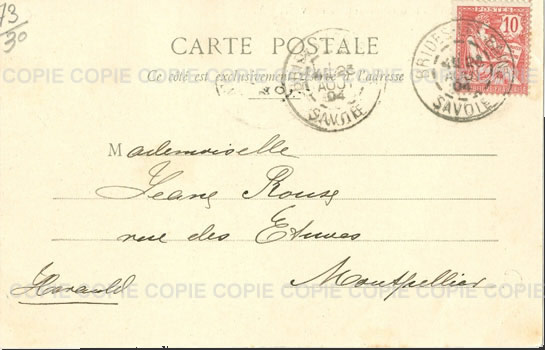 73/30
CARTE POSTALE
Ce côté est exclusivement réservé à l'adresse
POSTES
10
BRIDES
AOUT
04
SAVOIE
BRIDES
AOUT
04
SAVOIE
COPIE COPIE COPIE COPIE COPIE COPIE COPIE COPIE
Mademoiselle
Jeane Roux
rue des Etuves
Montpellier
Herauld
COPIE COPIE COPIE COPIE COPIE COPIE COPIE COPIE